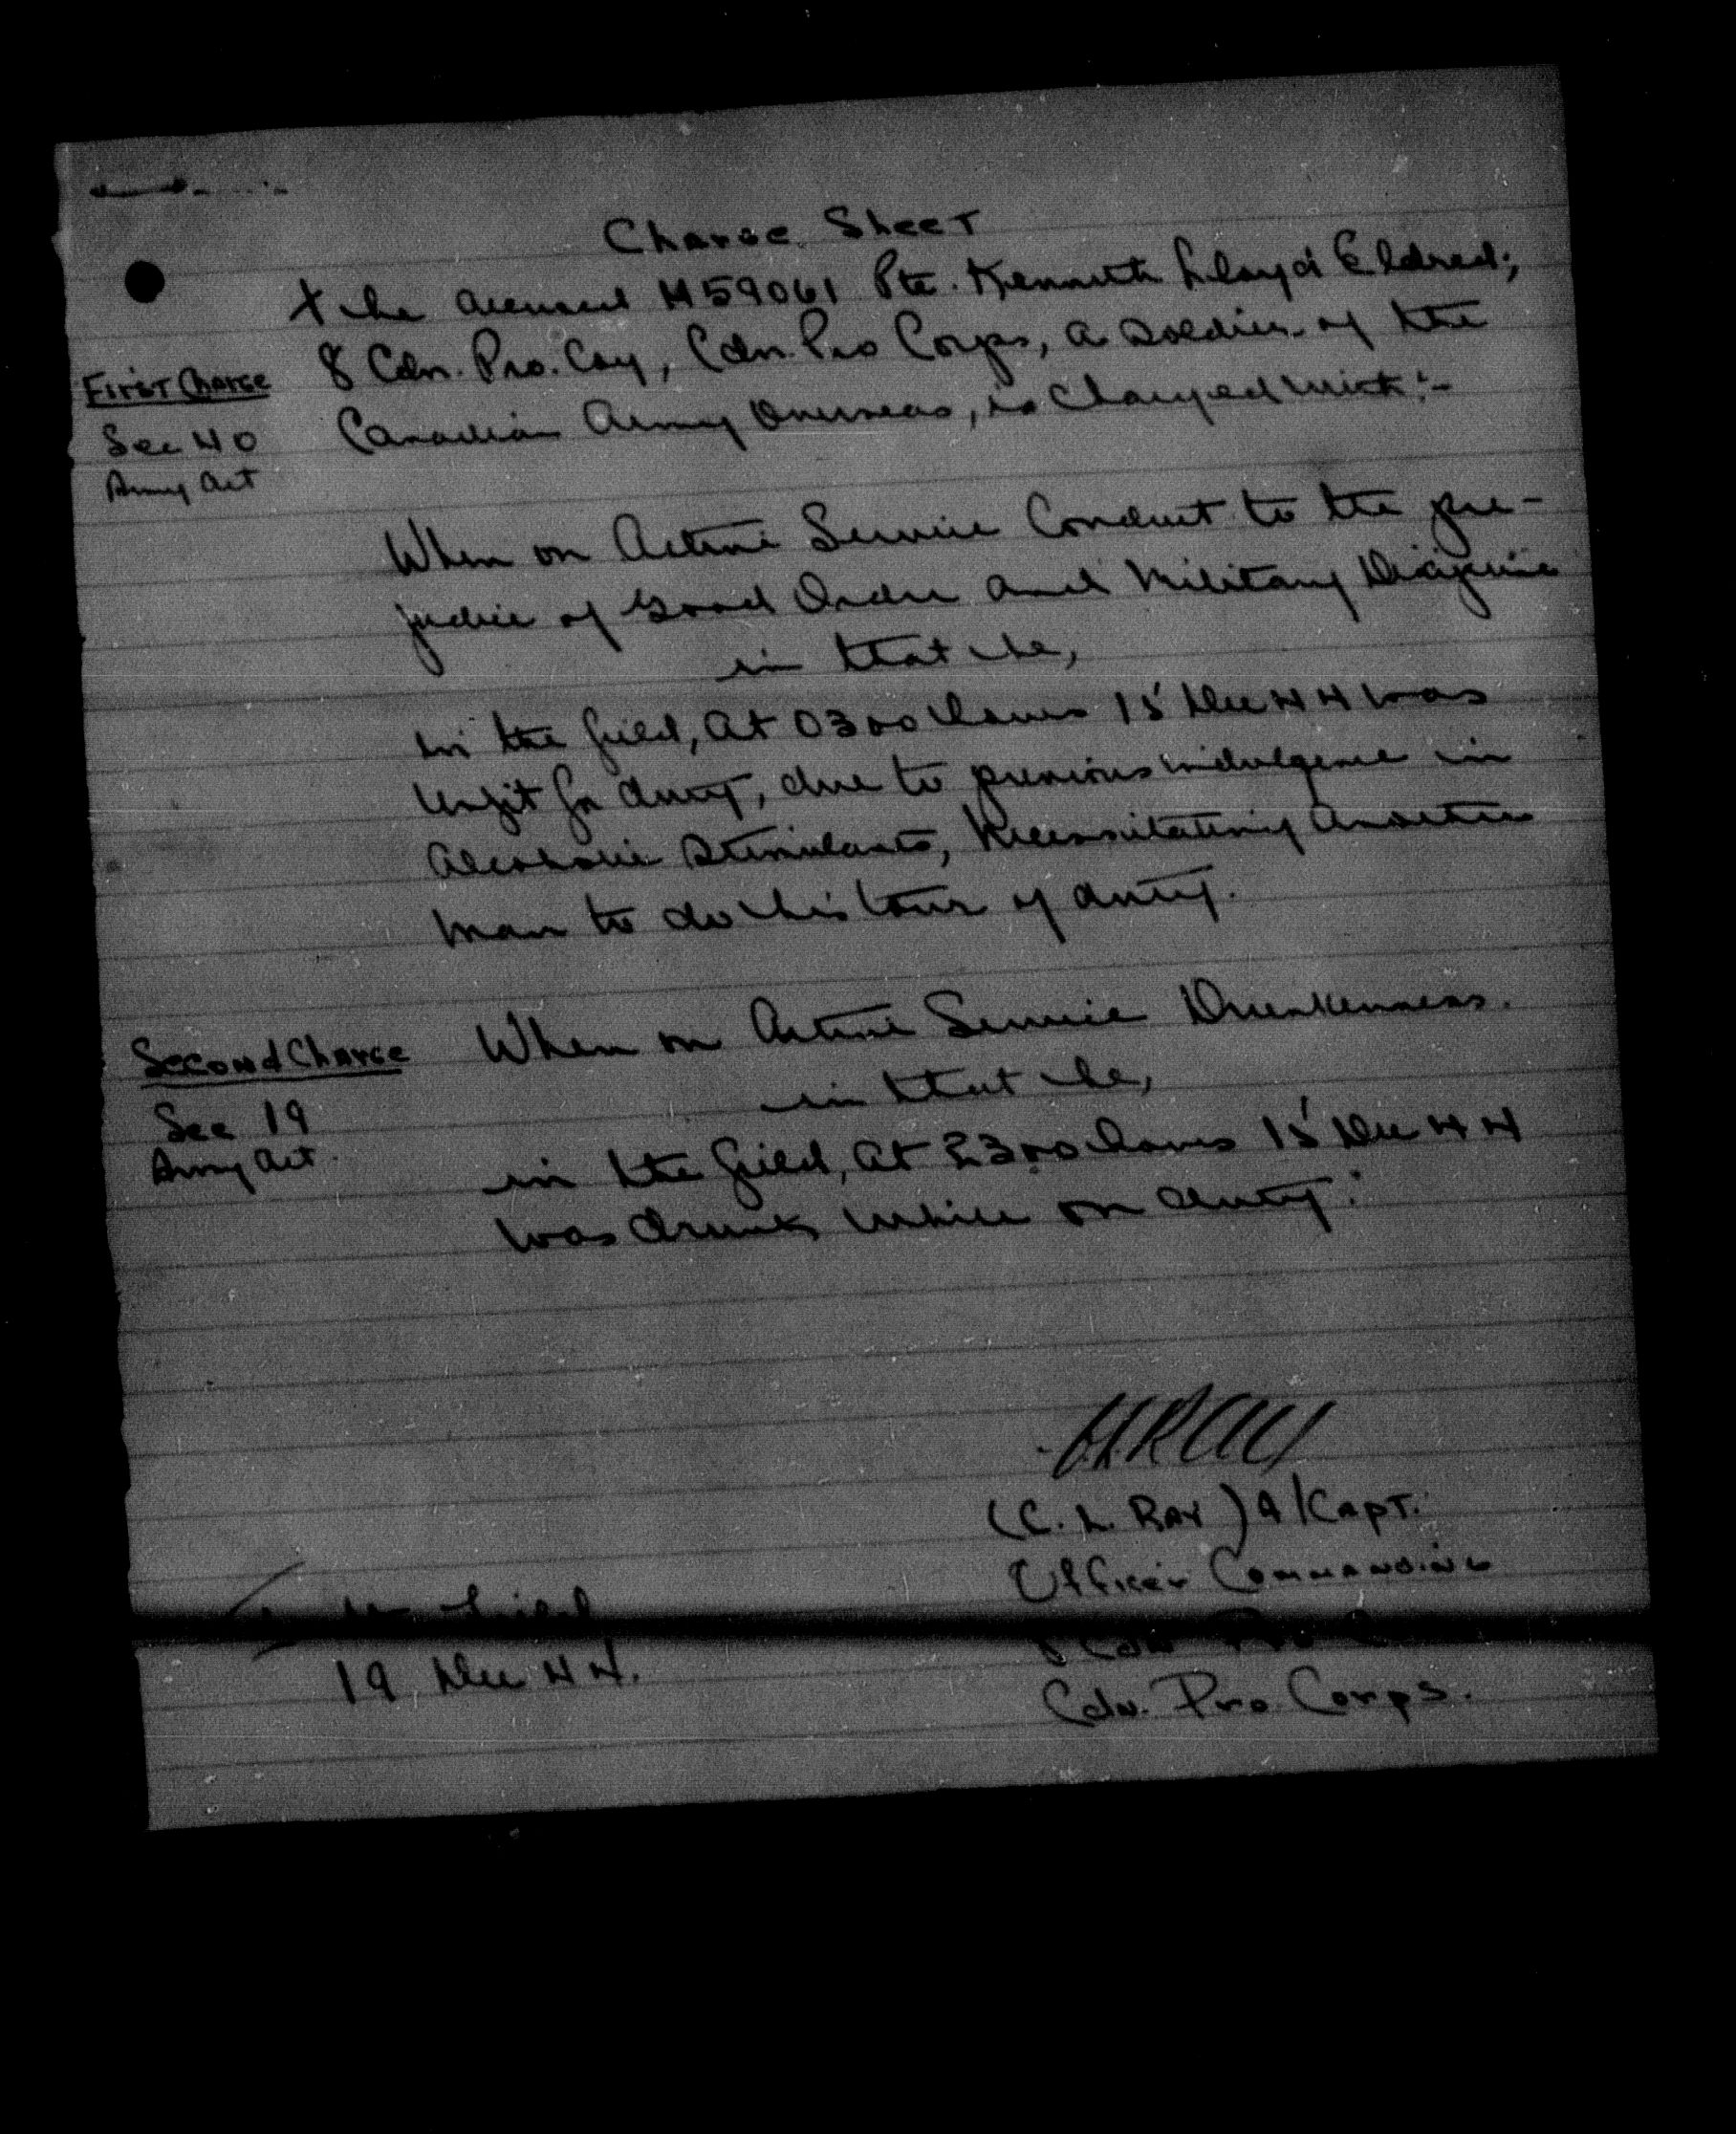 Charge Sheet
The accused H59061 Pte. Kenneth Lloyd Eldred,
8 Cdn. Pro. Coy, Cdn. Pro Corps, a soldier of the
First Charge
Canadian Army Overseas, is charged with:-
Sec 40
Army Act
When on Active Service Conduct to the pre-
judice of Good Order and Military Discipline
in that he,
in the field, at 0300 hours 15 Dec 44 was
unfit for duty, due to previous indulgence in
alcoholic stimulants, necessitating another
man to do his tour of duty.
Second Charge
When on Active Service Drunkenness.
in that he,
Sec 19
Army Act.
in the field, at 2300 hours 15 Dec 44
was drunk while on duty.
CLRay
(C. L. Ray) A/Capt.
Officer Commanding
In the Field
8 Cdn Pro
19 Dec 44.
Cdn. Pro. Corps.